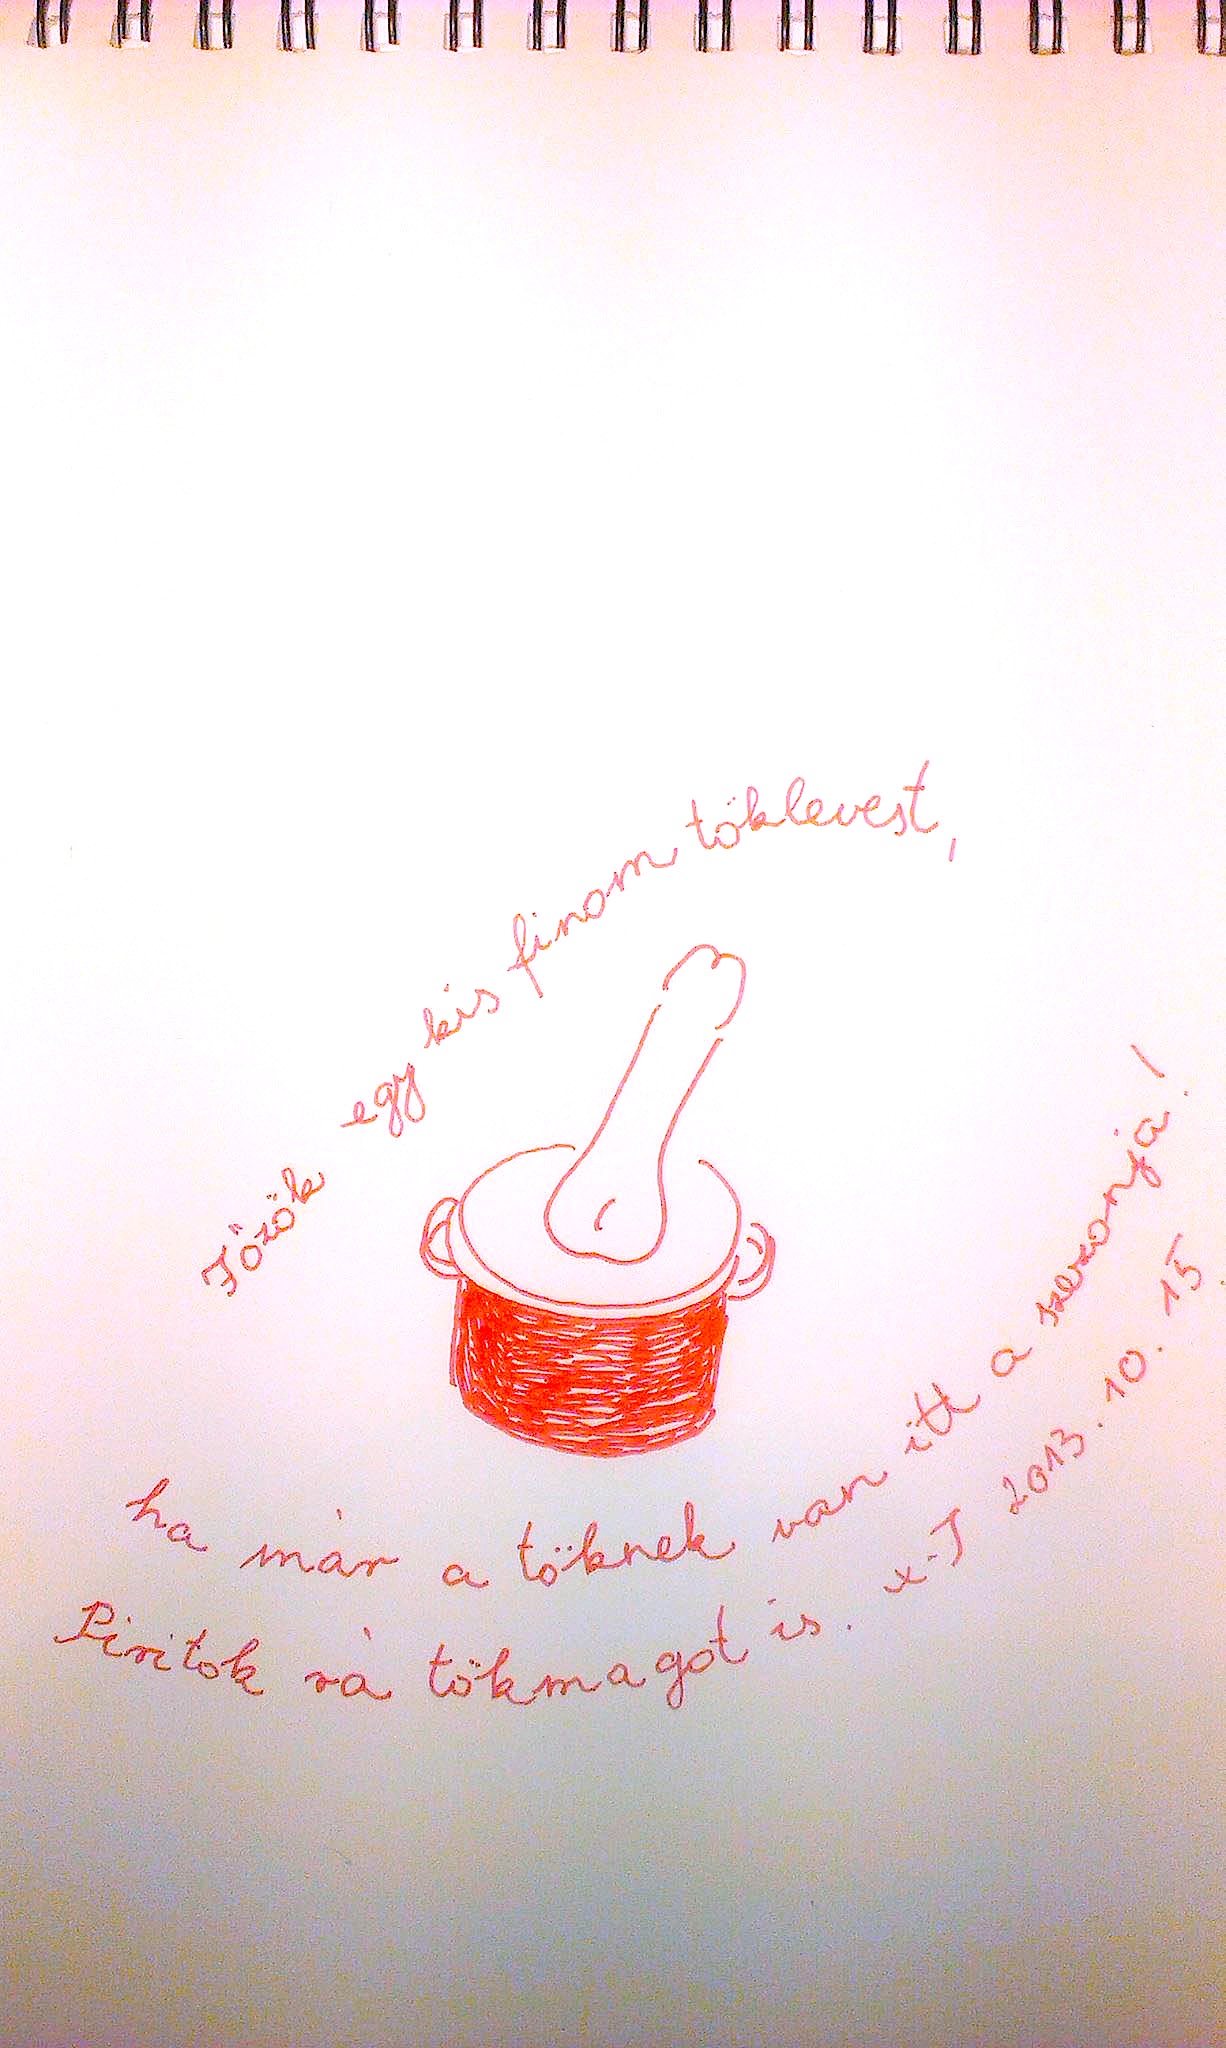 Főzök egy kis finom töklevest,
ha már a töknek van itt a szezonja!
Pirítok rá tökmagot is. x-J 2013.10.15.